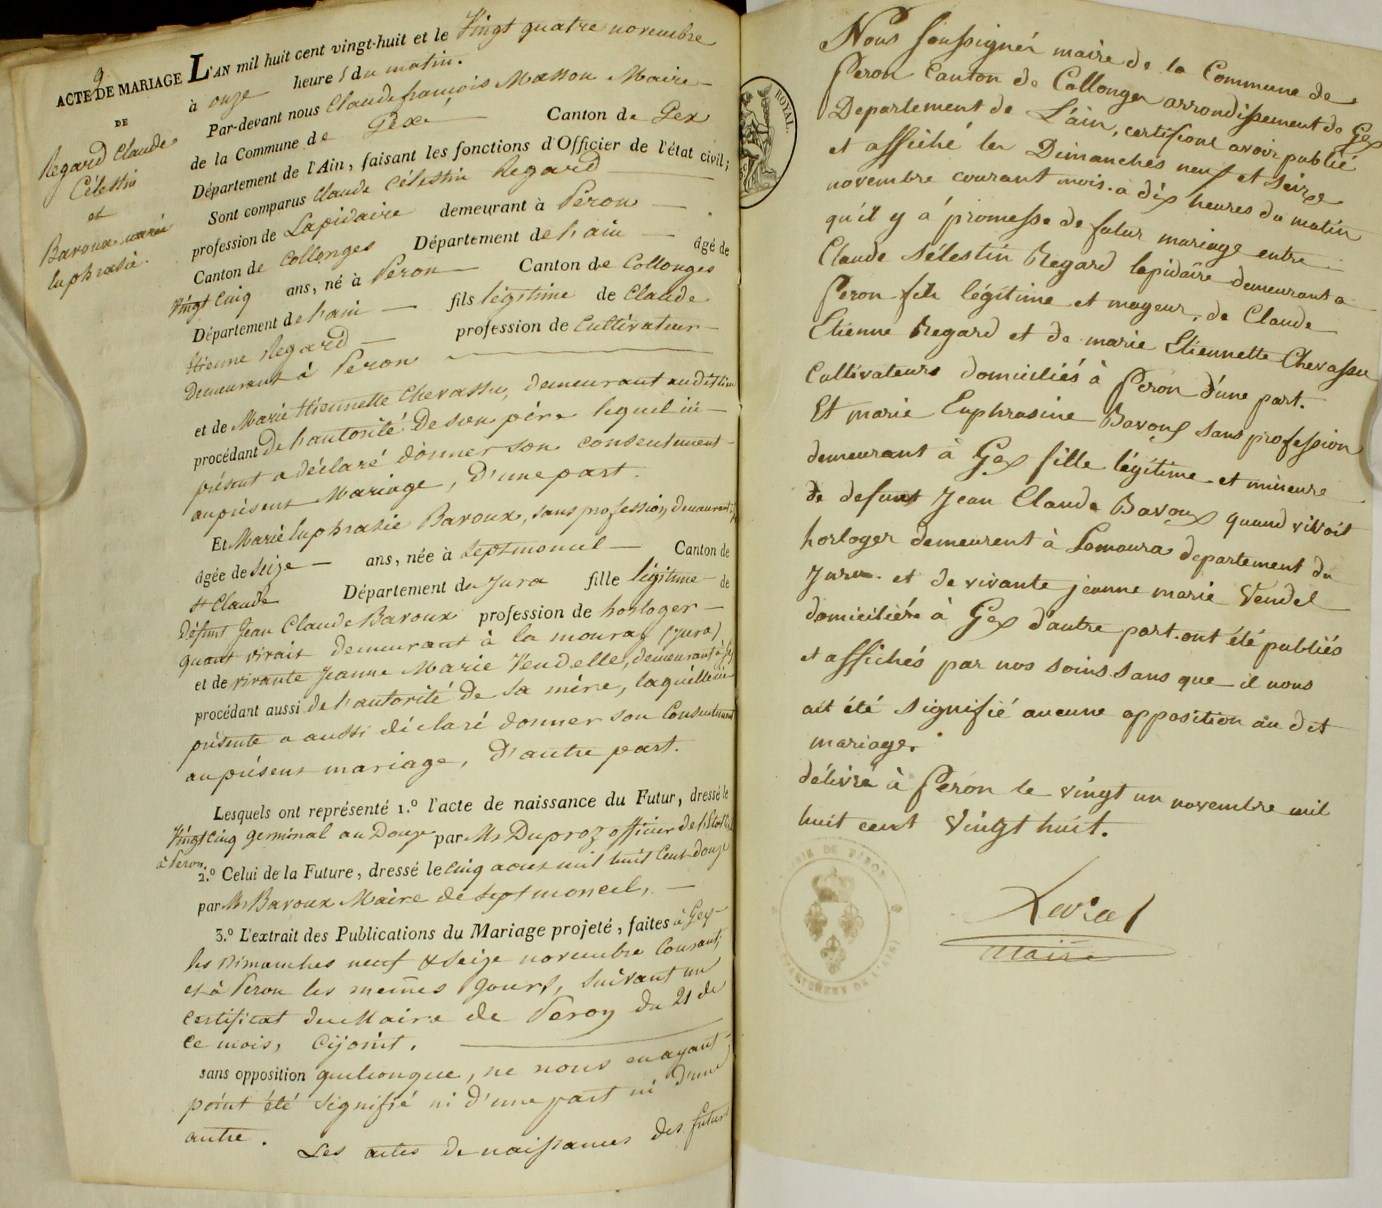 9
ACTE DE MARIAGE
DE
Regard Claude
Célestin
et
Baroux marie
Euphrasie.
L'AN mil huit cent vingt-huit et le Vingt quatre novembre
à onze heures du matin.
Par-devant nous Claude françois Masson Maire
de la Commune de Gex Canton de Gex
Département de l'Ain, faisant les fonctions d'Officier de l'état civil;
Sont comparus Claude Célestin Regard
profession de Lapidaire demeurant à Peron
Canton de Collonges Département de hain âgé de
Vingt Cinq ans, né à Peron Canton de Collonges
Département de hain fils légitime de Claude
Etienne Regard profession de Cultivateur
Demeurant à Peron
et de Marie Etiennette Chevassu, demeurant audit lieu
procédant De hautorité De son père lequel ici
présent a déclaré donner son consentement
au présent Mariage, D'une part.
Et Marie Euphrasie Baroux, sans profession, demeurant à
âgée de Seize ans, née à Septmoncel Canton de
St Claude Département du Jura fille légitime de
Défunt Jean Claude Baroux profession de horloger
quant vivait demeurant à la moura, (Jura)
et de vivante Jeanne Marie Vendelle, demeurant à Gex
procédant aussi de hautorité de sa mère, laquelle ici
présente a aussi déclaré donner son Consentement
au présent mariage, D'autre part.
Lesquels ont représenté 1.º l'acte de naissance du Futur, dressé le
Vingt cinq germinal an Douze par Mr Duproz officier de l'Etat Civil
à Peron.
2.º Celui de la Future, dressé le Cinq aout mil huit Cent douze
par Mr Baroux Maire de Septmoncel,
3.º L'extrait des Publications du Mariage projeté, faites à Gex
les Dimanches neuf & Seize novembre Courant,
et à Peron les meîmes jours, suivant un
Certificat du Maire de Peron du 21 de
Ce mois, Cijoint.
sans opposition quelconque, ne nous en ayant
point été signifié ni d'une part ni d'une
autre. Les actes de naissances des futurs
ROYAL.
Nous Soussigner maire de la Commune de
Peron Canton de Collonges arrondissement de Gex
Departement de L'ain, certifions avoir publié
et affiché les Dimanches neuf et seize
novembre courant mois. a dix heures du matin
qu'il y a promesse de futur mariage entre
Claude Sélestin Regard lapidaire demeurant a
Peron fils légitime et mageur, de Claude
Etienne Regard et de marie Etiennette Chevassu
Cultivateurs domiciliés à Peron d'une part.
Et marie Euphrasine Bavoux sans profession
demeurant à Gex fille légitime et mineure
de defunt Jean Claude Bavoux quand vivoit
horloger demeurent à Lamoura departement du
Jura. et de vivante jeanne marie Vendel
domiciliée à Gex d'autre part. ont été publiés
et affichés par nos soins. sans que il nous
ait été signifié aucune opposition au dit
mariage.
délivré à Peron le vingt un novembre mil
huit cent vingt huit.
MAIRIE DE PERON
DÉPARTEMENT DE L'AIN
Maire